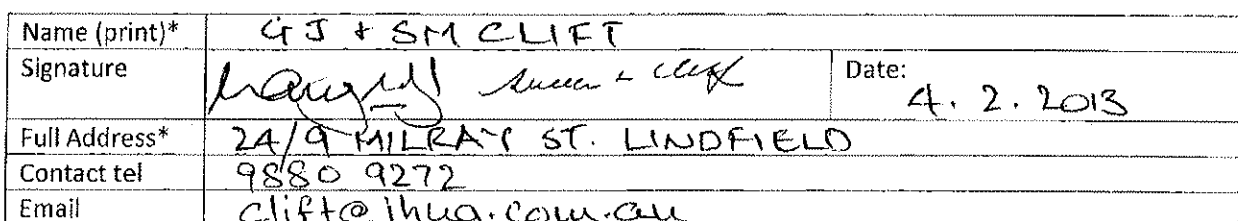 Name (print)* GJ + SM CLIFT
Signature Date: 4. 2. 2013
Full Address* 24/9 MILRAY ST. LINDFIELD
Contact tel 9880 9272
Email